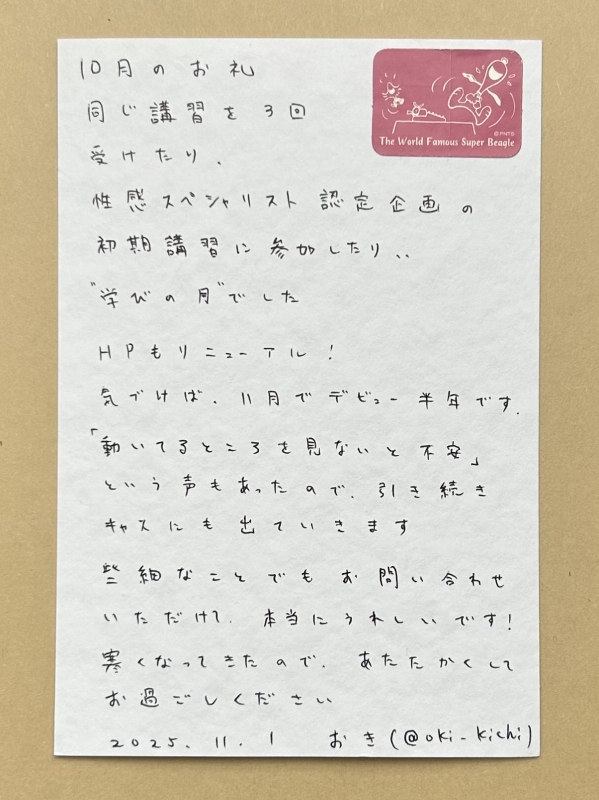 10月のお礼
同じ講習を3回
受けたり、
性感スペシャリスト認定企画の
初期講習に参加したり、、
"学びの月"でした
HPもリニューアル!
気づけば、11月でデビュー半年です.
「動いてるところを見ないと不安」
という声もあったので、引き続き
キャスにも出ていきます
些細なことでもお問い合わせ
いただけて、本当にうれしいです!
寒くなってきたので、あたたかくして
お過ごしください
2025.11.1 おき(@oki_kichi)
The World Famous Super Beagle